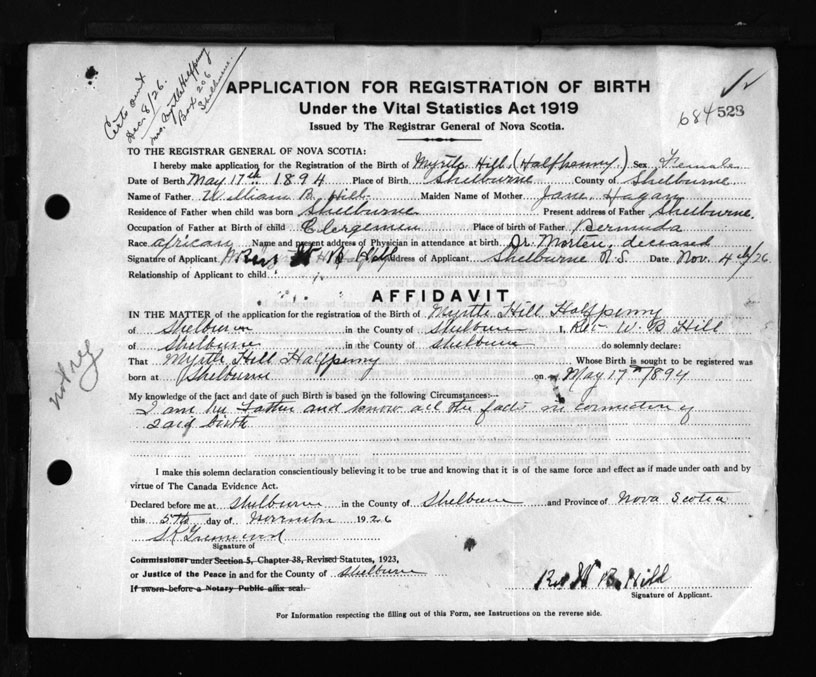 Certs sent
Dec 8/26.
Mrs. Myrtle Halfpenny
Box 206
Shelburne.
APPLICATION FOR REGISTRATION OF BIRTH
Under the Vital Statistics Act 1919
Issued by The Registrar General of Nova Scotia.
684 523
TO THE REGISTRAR GENERAL OF NOVA SCOTIA:
I hereby make application for the Registration of the Birth of Myrtle Hill (Halfpenny.) Sex Female
Date of Birth May 17th 1894 Place of Birth Shelburne County of Shelburne
Name of Father William B. Hill Maiden Name of Mother Jane Hagan
Residence of Father when child was born Shelburne Present address of Father Shelburne.
Occupation of Father at Birth of child Clergemen Place of birth of Father Bermuda
Race african Name and present address of Physician in attendance at birth Dr. Morten, deceased
Signature of Applicant Rev W B Hill Address of Applicant Shelburne N.S. Date Nov. 4th/26
Relationship of Applicant to child
AFFIDAVIT
IN THE MATTER of the application for the registration of the Birth of Myrtle Hill Halfpenny
of Shelburne in the County of Shelburne I, Rev. W. B Hill
of Shelburne in the County of Shelburne do solemnly declare:
That Myrtle Hill Halfpenny Whose Birth is sought to be registered was
born at Shelburne on May 17th 1894
not reg
My knowledge of the fact and date of such Birth is based on the following Circumstances:—
I am her Father and know all the facts in connection of
said birth
I make this solemn declaration conscientiously believing it to be true and knowing that it is of the same force and effect as if made under oath and by
virtue of The Canada Evidence Act.
Declared before me at Shelburne in the County of Shelburne and Province of Nova Scotia
this 5th day of November 1926
Signature of
Commissioner under Section 5, Chapter 38, Revised Statutes, 1923,
or Justice of the Peace in and for the County of Shelburne
If sworn before a Notary Public affix seal.
Rev W B Hill
Signature of Applicant.
For Information respecting the filling out of this Form, see Instructions on the reverse side.